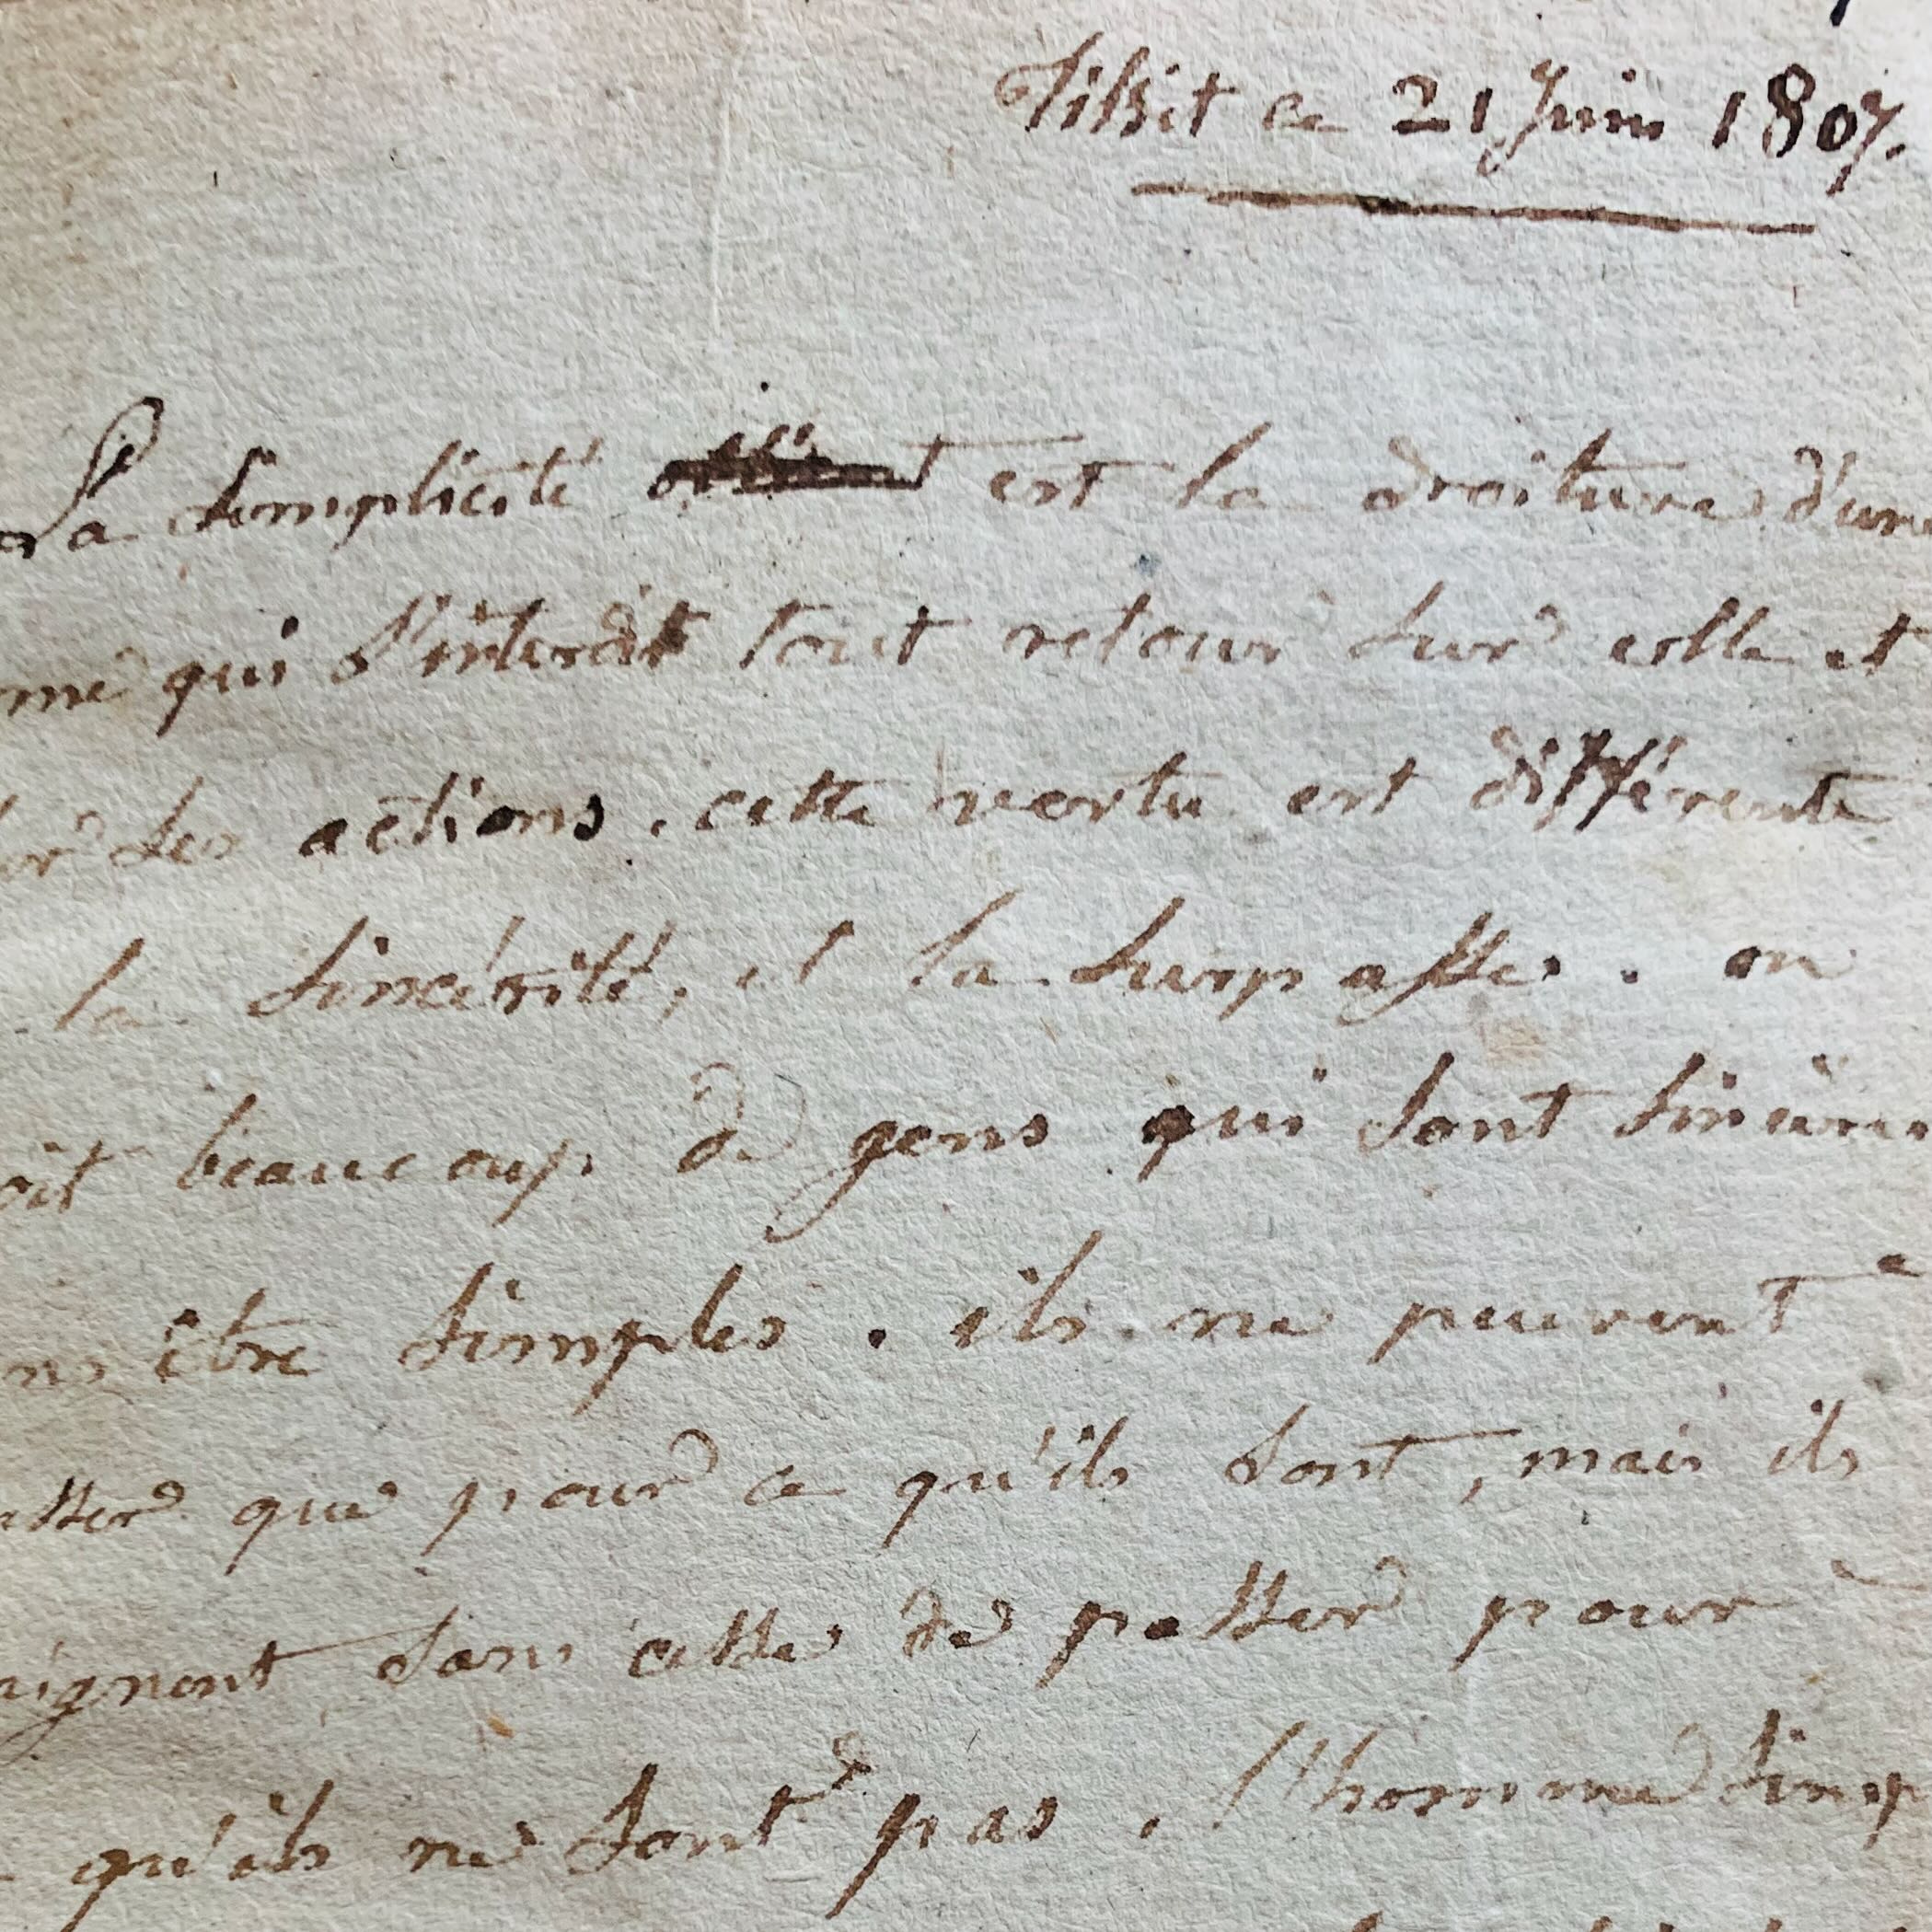 Tilsit ce 21 Juin 1807.
La simplicité est la droiture d'une
me qui s'interdit tout retour sur elle et
ur ses actions. cette vertu est différente
la sincérité, et la surpasse. on
oit beaucoup de gens qui sont sincères
ns être simples. ils ne peuvent
asser que pour ce qu'ils sont, mais ils
aignent sans cesse de passer pour
qu'ils ne sont pas. l'homme simp